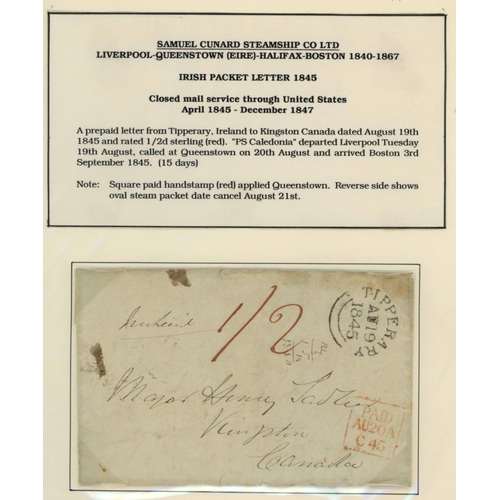 SAMUEL CUNARD STEAMSHIP CO LTD
LIVERPOOL-QUEENSTOWN (EIRE)-HALIFAX-BOSTON 1840-1867
IRISH PACKET LETTER 1845
Closed mail service through United States
April 1845 - December 1847
A prepaid letter from Tipperary, Ireland to Kingston Canada dated August 19th
1845 and rated 1/2d sterling (red). "PS Caledonia" departed Liverpool Tuesday
19th August, called at Queenstown on 20th August and arrived Boston 3rd
September 1845. (15 days)
Note: Square paid handstamp (red) applied Queenstown. Reverse side shows
oval steam packet date cancel August 21st.
1/2
TIPPERARY
AU 19
1845
Major Henry
PAID
AU20A
C 45
Kingston
Canada